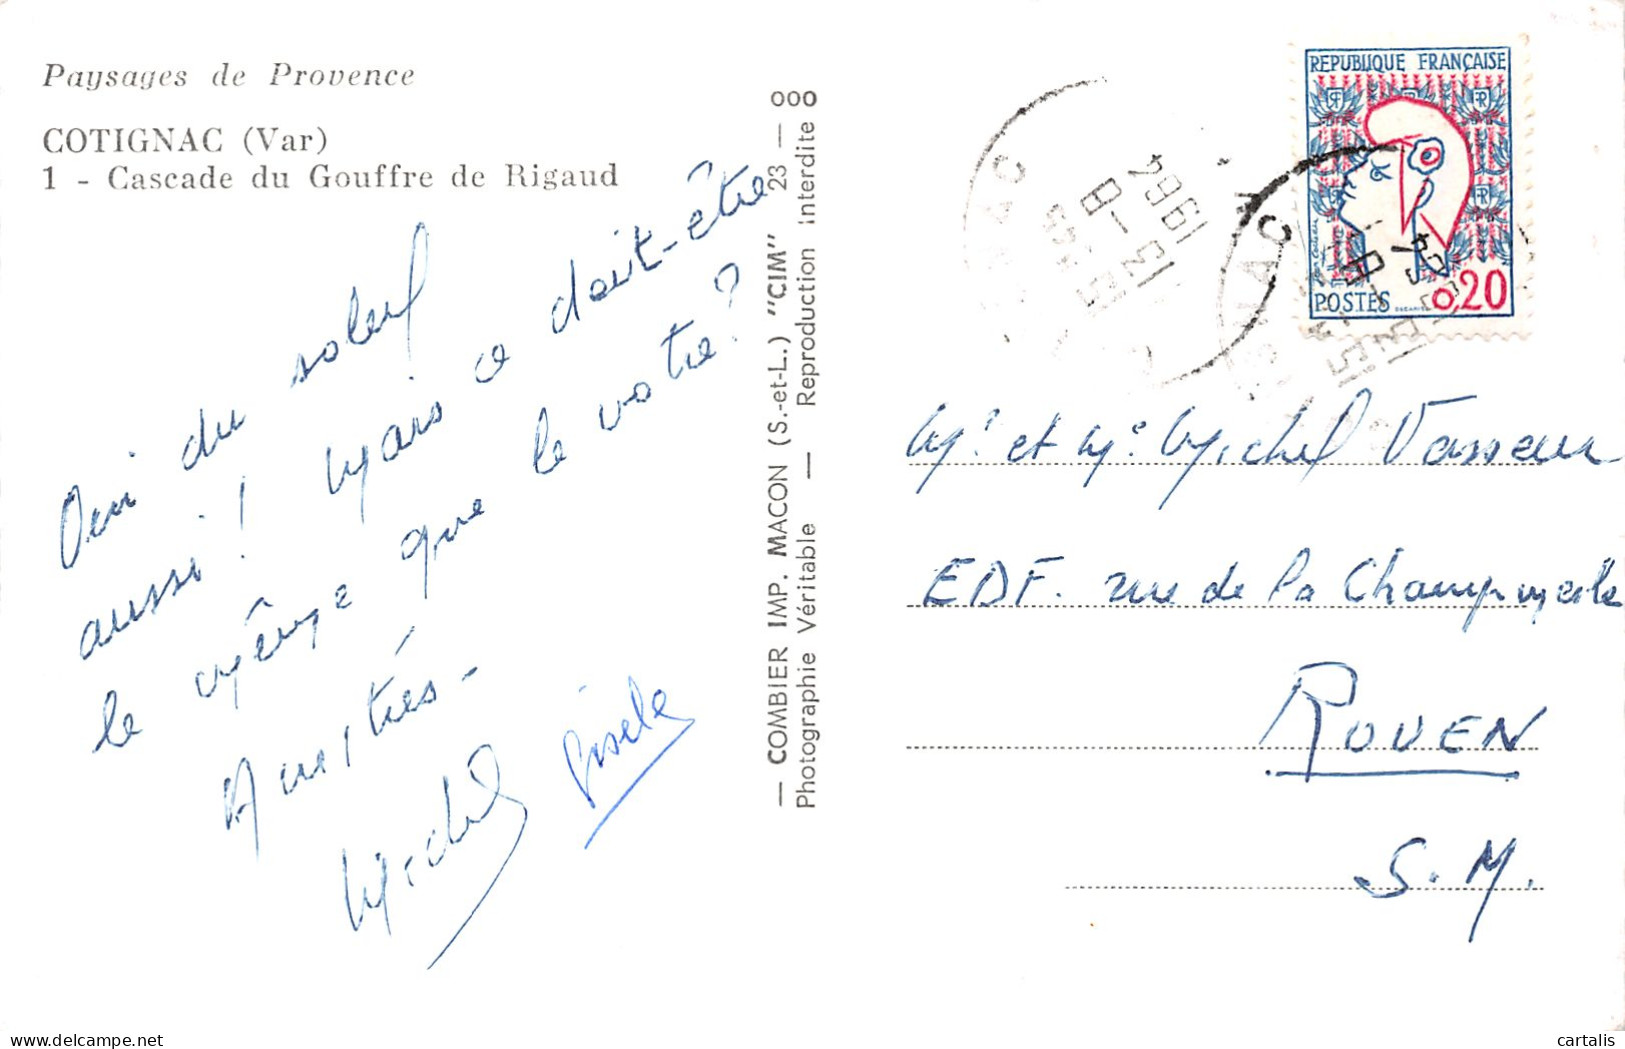 Paysages de Provence
COTIGNAC (Var)
1 - Cascade du Gouffre de Rigaud
Oui du soleil
aussi ! Mais ce doit-être
le même que le votre ?
Amitiés -
Michel Gisèle
— COMBIER IMP. MACON (S.-et-L.) "CIM" 23 — 000
Photographie Véritable — Reproduction Interdite
REPUBLIQUE FRANÇAISE
POSTES 0,20
1964
Mr et Me Michel Vasseur
EDF. rue de la Champmeslé
ROUEN
S. M.
delcampe.net
cartalis